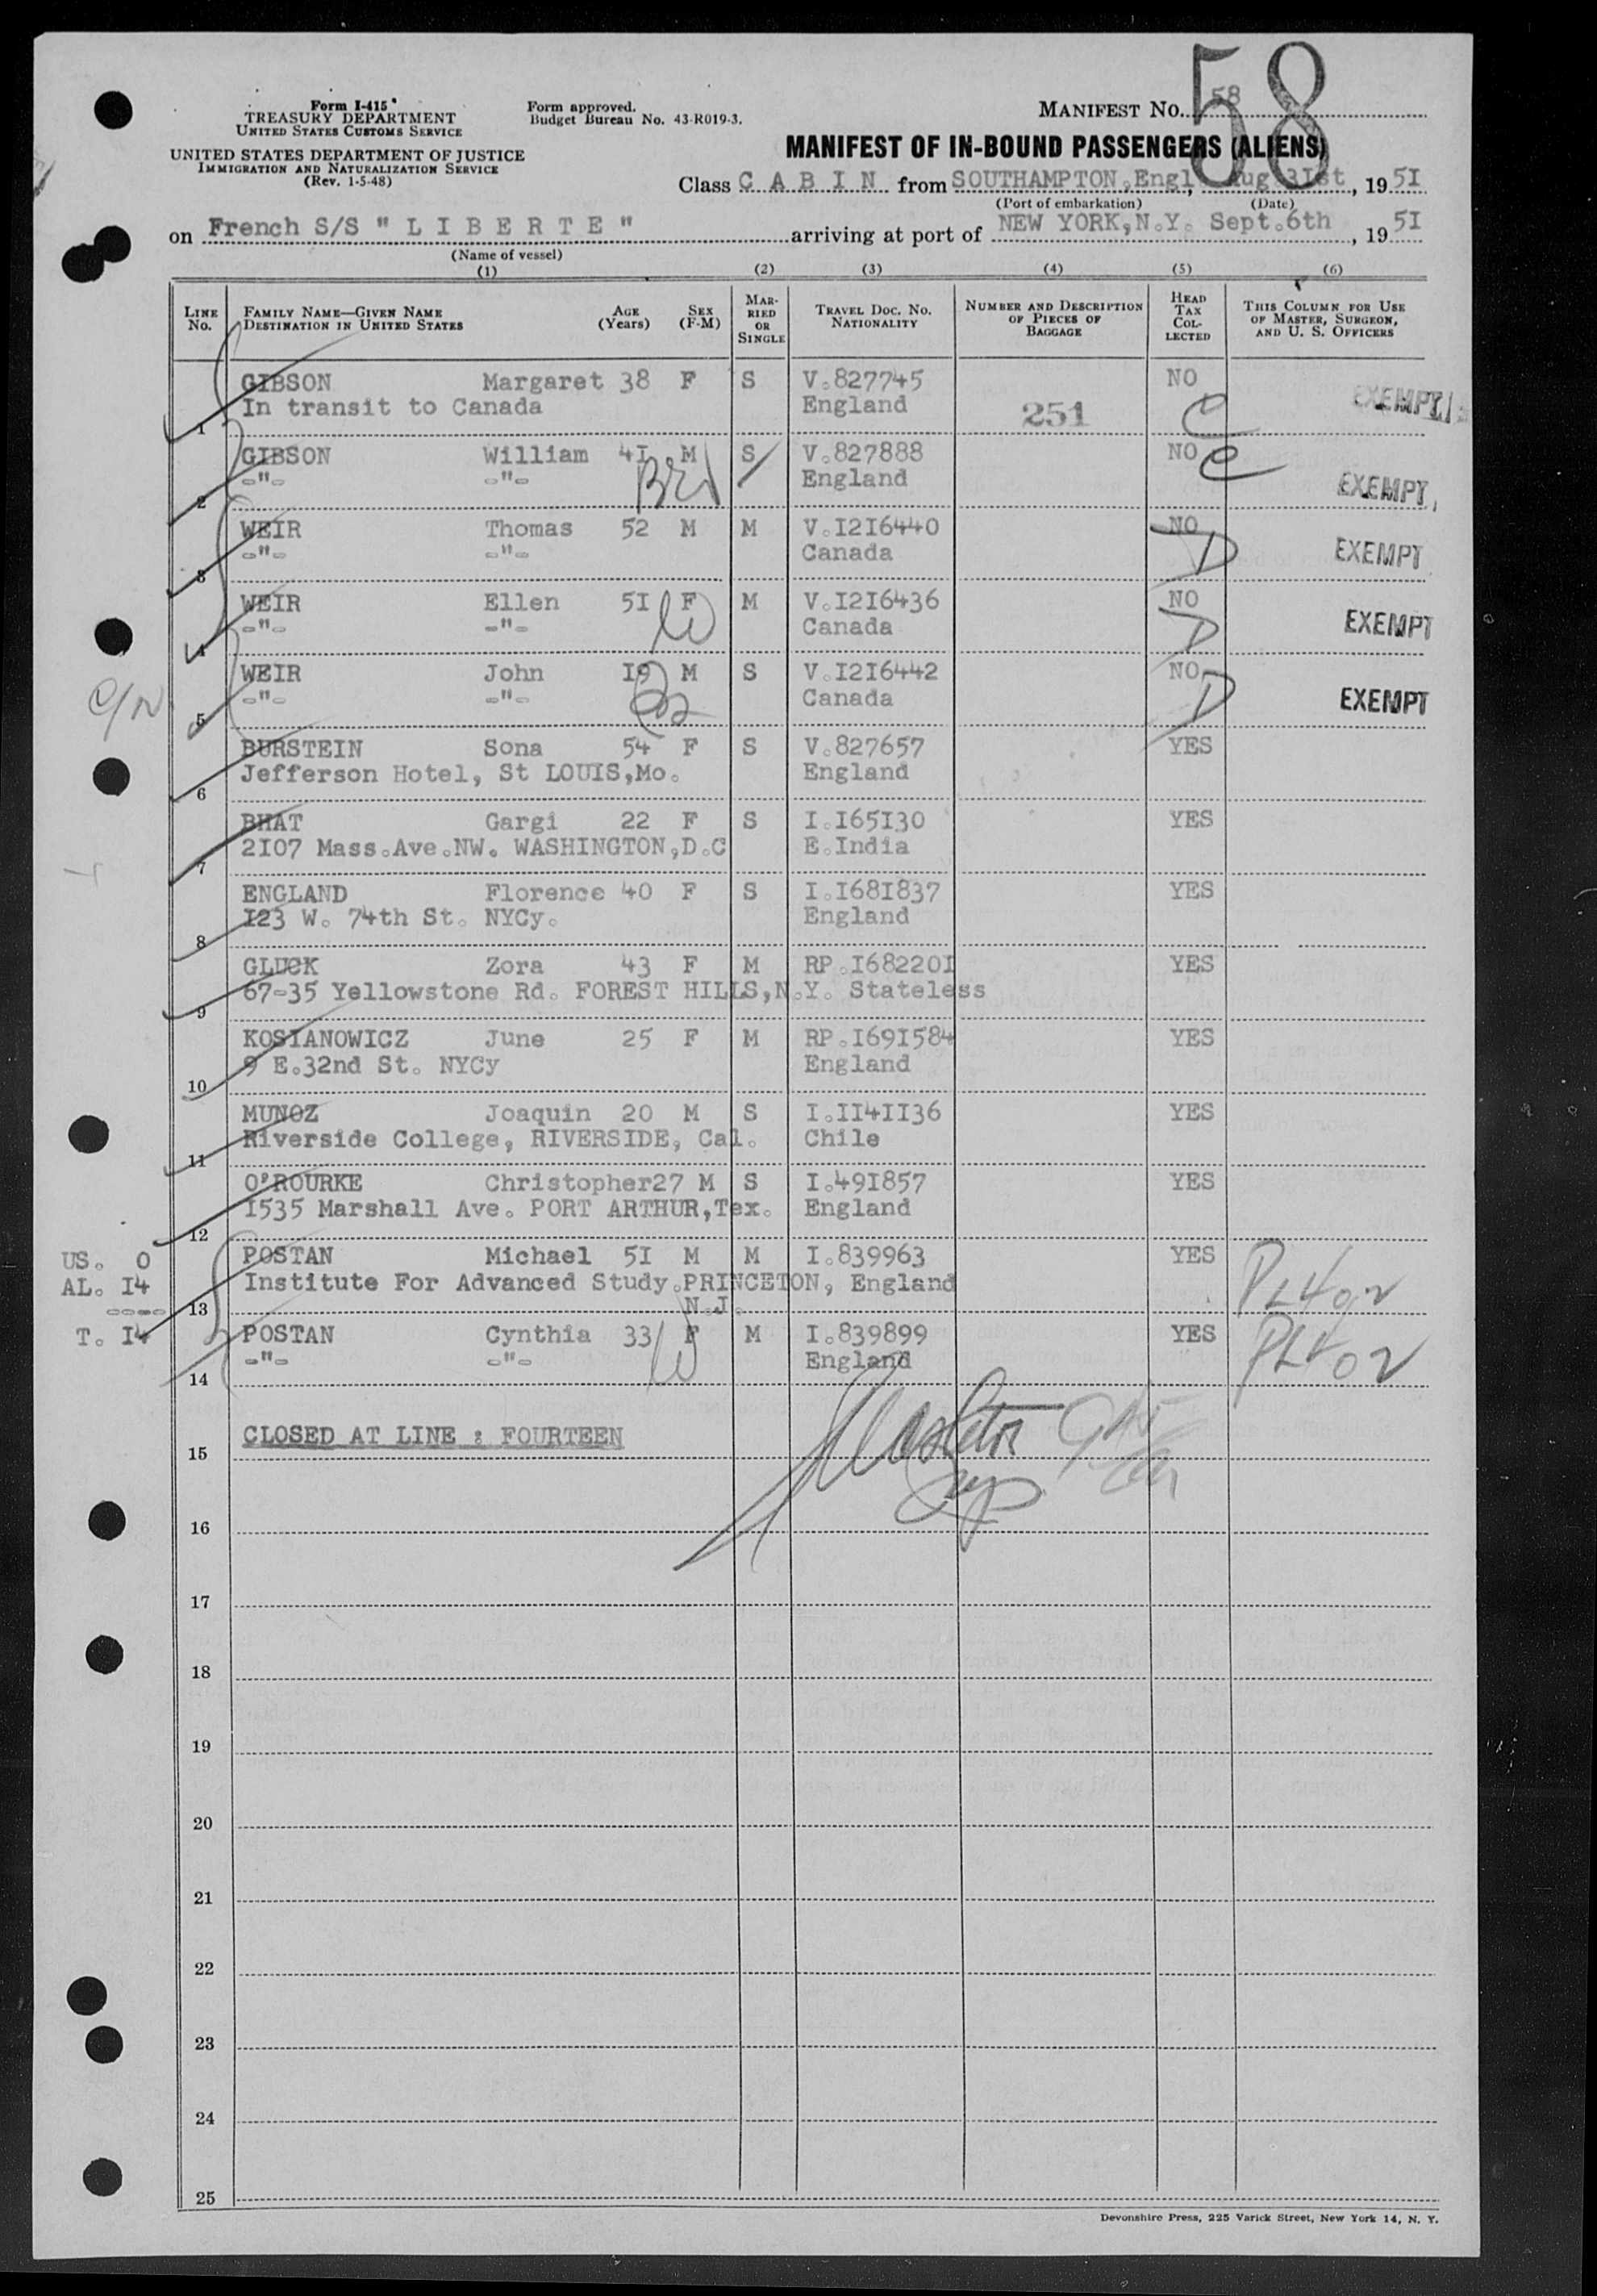 58
Form I-415
TREASURY DEPARTMENT
UNITED STATES CUSTOMS SERVICE
UNITED STATES DEPARTMENT OF JUSTICE
IMMIGRATION AND NATURALIZATION SERVICE
(Rev. 1-5-48)
Form approved.
Budget Bureau No. 43-R019-3.
MANIFEST NO. 58
MANIFEST OF IN-BOUND PASSENGERS (ALIENS)
Class C A B I N from SOUTHAMPTON,Engl, Aug 31st, 1951
(Port of embarkation) (Date)
on French S/S " L I B E R T E " arriving at port of NEW YORK,N.Y. Sept.6th, 1951
(Name of vessel)
(1) (2) (3) (4) (5) (6)
LINE No. FAMILY NAME—GIVEN NAME DESTINATION IN UNITED STATES AGE (Years) SEX (F-M) MARRIED OR SINGLE TRAVEL DOC. NO. NATIONALITY NUMBER AND DESCRIPTION OF PIECES OF BAGGAGE HEAD TAX COLLECTED THIS COLUMN FOR USE OF MASTER, SURGEON, AND U. S. OFFICERS
GIBSON Margaret 38 F S V.827745 NO EXEMPT
1 In transit to Canada England 251 C
GIBSON William 4I M S V.827888 NO C
2 -"- -"- England EXEMPT
WEIR Thomas 52 M M V.I2I6440 NO D
3 -"- -"- Canada EXEMPT
WEIR Ellen 5I F M V.I2I6436 NO D
4 -"- -"- W Canada EXEMPT
WEIR John I9 M S V.I2I6442 NO D
5 -"- -"- Canada EXEMPT
C/N
BURSTEIN Sona 54 F S V.827657 YES
6 Jefferson Hotel, St LOUIS,Mo. England
BHAT Gargi 22 F S I.I65I30 YES
7 2I07 Mass.Ave.NW. WASHINGTON,D.C E.India
ENGLAND Florence 40 F S I.I68I837 YES
8 I23 W. 74th St. NYCy. England
GLUCK Zora 43 F M RP.I68220I YES
9 67-35 Yellowstone Rd. FOREST HILLS,N.Y. Stateless
KOSIANOWICZ June 25 F M RP.I69I584 YES
10 9 E.32nd St. NYCy England
MUNOZ Joaquin 20 M S I.II4II36 YES
11 Riverside College, RIVERSIDE, Cal. Chile
O'ROURKE Christopher27 M S I.49I857 YES
12 I535 Marshall Ave. PORT ARTHUR,Tex. England
US. 0 POSTAN Michael 5I M M I.839963 YES
AL. I4 Institute For Advanced Study.PRINCETON, England
----
13 N.J.
T. I4 POSTAN Cynthia 33 F M I.839899 YES
14 -"- -"- W England
15 CLOSED AT LINE : FOURTEEN
16
17
18
19
20
21
22
23
24
25
Devonshire Press, 225 Varick Street, New York 14, N. Y.